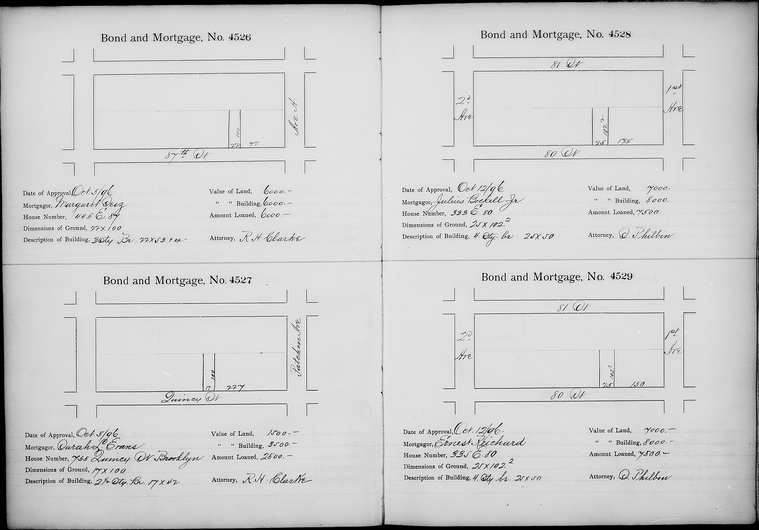 Bond and Mortgage, No. 4526
Ave A
100
22 77
87th St
Date of Approval, Oct 5/96
Value of Land, 6000.—
Mortgagor, Margaret
" " Building, 6000.—
House Number, 445 E 87
Amount Loaned, 6000.—
Dimensions of Ground, 22 x 100
Description of Building, 3 Sty Br. 22 x 53 + ex.—
Attorney, R H Clarke
Bond and Mortgage, No. 4527
Patchen Ave
100
17 227
Quincy St
Date of Approval, Oct 5/96
Value of Land, 1500.—
Mortgagor, Sarah Evans
" " Building, 3500.—
House Number, Quincy St Brooklyn
Amount Loaned, 2500.—
Dimensions of Ground, 17 x 100
Description of Building, 2½ Sty Br 17 x 42
Attorney, R H Clarke
Bond and Mortgage, No. 4528
81 St
2d Ave
1st Ave
102.2
25 175
80 St
Date of Approval, Oct 12/96
Value of Land, 7000.—
Mortgagor, Julius Jr
" " Building, 8000.—
House Number, 333 E 80
Amount Loaned, 7500.—
Dimensions of Ground, 25 x 102.2
Description of Building, 4 Sty br 25 x 50
Attorney, D Philbin
Bond and Mortgage, No. 4529
81 St
2d Ave
1st Ave
102.2
25 150
80 St
Date of Approval, Oct 12/96.
Value of Land, 7000.—
Mortgagor, Ernest Richard
" " Building, 8000.—
House Number, 335 E 80
Amount Loaned, 7500.—
Dimensions of Ground, 25 x 102.2
Description of Building, 4 Sty br 25 x 50
Attorney, D Philbin